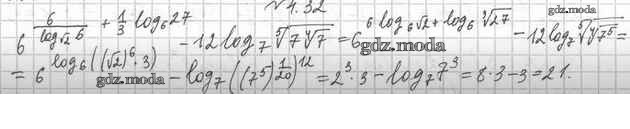 №4.32
6^{6/log_{√2} 6 + 1/3 log_6 27} - 12 log_7 \sqrt[5]{7\sqrt[4]{7}} = 6^{6 log_6 √2 + log_6 \sqrt[3]{27}} - 12 log_7 \sqrt[5]{\sqrt[4]{7^5}} =
= 6^{log_6((√2)^6 · 3)} - log_7((7^5)^{1/20})^{12} = 2^3 · 3 - log_7 7^3 = 8·3 - 3 = 21.
gdz.moda
gdz.moda
gdz.moda